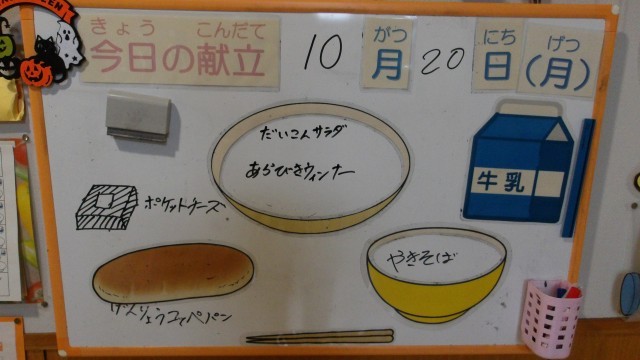 きょう こんだて
今日の献立 10月20日(月)
がつ にち げつ
だいこんサラダ
あらびきウィンナー
牛乳
ポケットチーズ
やきそば
げんりょうコッペパン